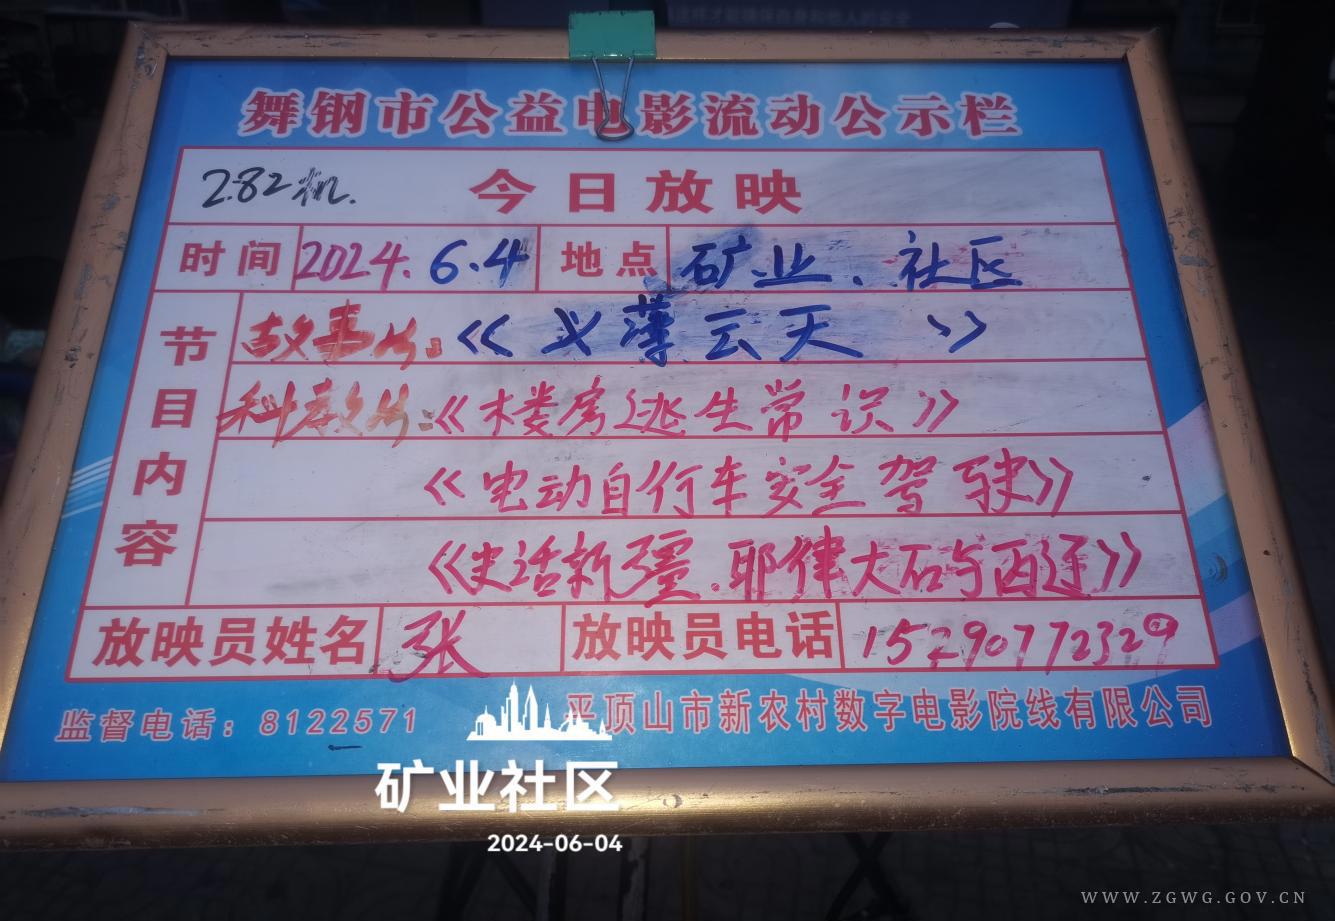 舞钢市公益电影流动公示栏
282机. 今日放映
时间 2024.6.4 地点 矿业.社区
节目内容
故事片:《义薄云天》
科教片:《楼房逃生常识》
《电动自行车安全驾驶》
《史话新疆.耶律大石与西辽》
放映员姓名 张 放映员电话 15290772329
监督电话:8122571 平顶山市新农村数字电影院线有限公司
矿业社区
2024-06-04
WWW.ZGWG.GOV.CN